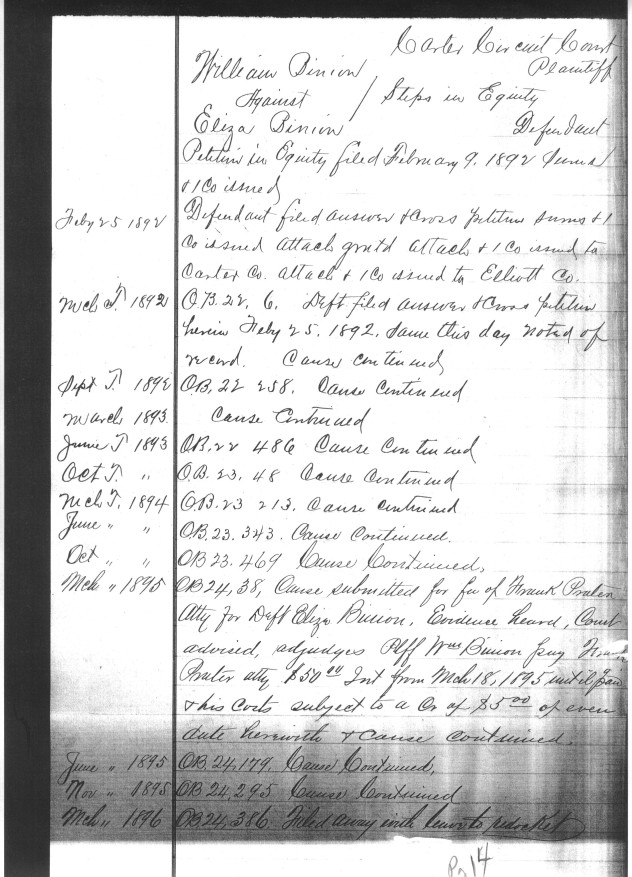 Carter Circuit Court
William Binion Plaintiff
Against / Steps in Equity
Eliza Binion Defendant
Petition in Equity filed February 9, 1892 Sums
& 1 Co issued
Feby 25 1892 Defendant filed answer & Cross petition sums & 1
Co issued attach grntd attach & 1 Co issued to
Carter Co. attach & 1 Co issued to Elliott Co.
Mch T. 1892 O.B. 22, 6. Deft filed answer & Cross petition
herein Feby 25, 1892, same this day noted of
record. Cause continued
Sept T. 1892 O.B. 22 258. Cause continued
March 1893 Cause Continued
June T 1893 O.B. 22 486 Cause Continued
Oct T. " O.B. 23, 48 Cause Continued
Mch T. 1894 O.B. 23 213. Cause continued
June " " OB. 23. 343. Cause Continued.
Oct " " OB 23. 469 Cause Continued,
Mch " 1895 OB 24, 38, Cause submitted for fee of Frank Prater
Atty for Deft Eliza Binion, Evidence heard, Court
advised, adjudges Plff Wm Binion pay Frank
Prater atty $50 00 Int from Mch 18, 1895 until paid
& his Costs subject to a Cr of $5 00 of even
date herewith & cause continued.
June " 1895 OB 24, 179, Cause Continued,
Nov " 1895 OB 24, 295 Cause Continued
Mch " 1896 OB 24, 386 Filed away with leave to redocket
Pg 14